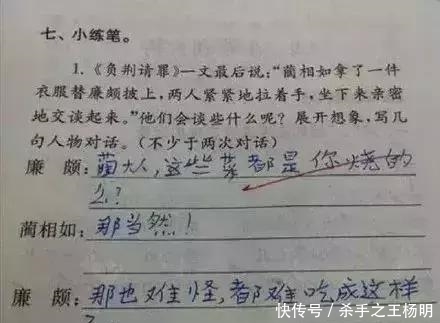 七、小练笔。
1.《负荆请罪》一文最后说:“蔺相如拿了一件
衣服替廉颇披上,两人紧紧地拉着手,坐下来亲密
地交谈起来。”他们会谈些什么呢?展开想象,写几
句人物对话。(不少于两次对话)
廉 颇:蔺大人,这些菜都是你烧的
么?
蔺相如:那当然!
廉 颇:那也难怪,都难吃成这样
了
快传号/杀手之王杨明